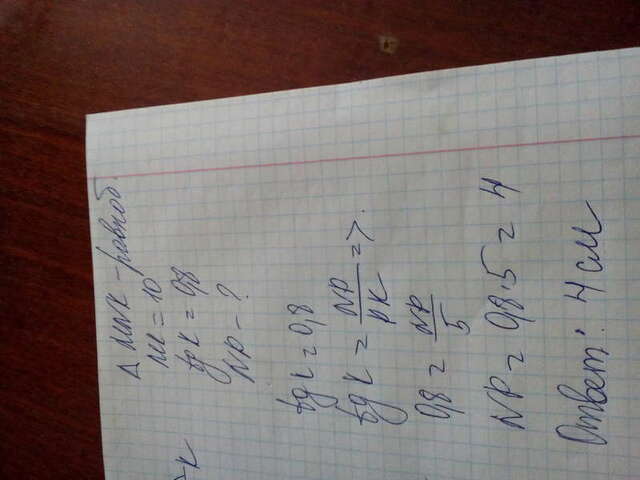 Δ MNK - равноб.
MK = 10
tg K = 0,8
NP - ?
tg K = 0,8
tg K = NP/PK =>.
0,8 = NP/5
NP = 0,8·5 = 4
Ответ: 4 см
K